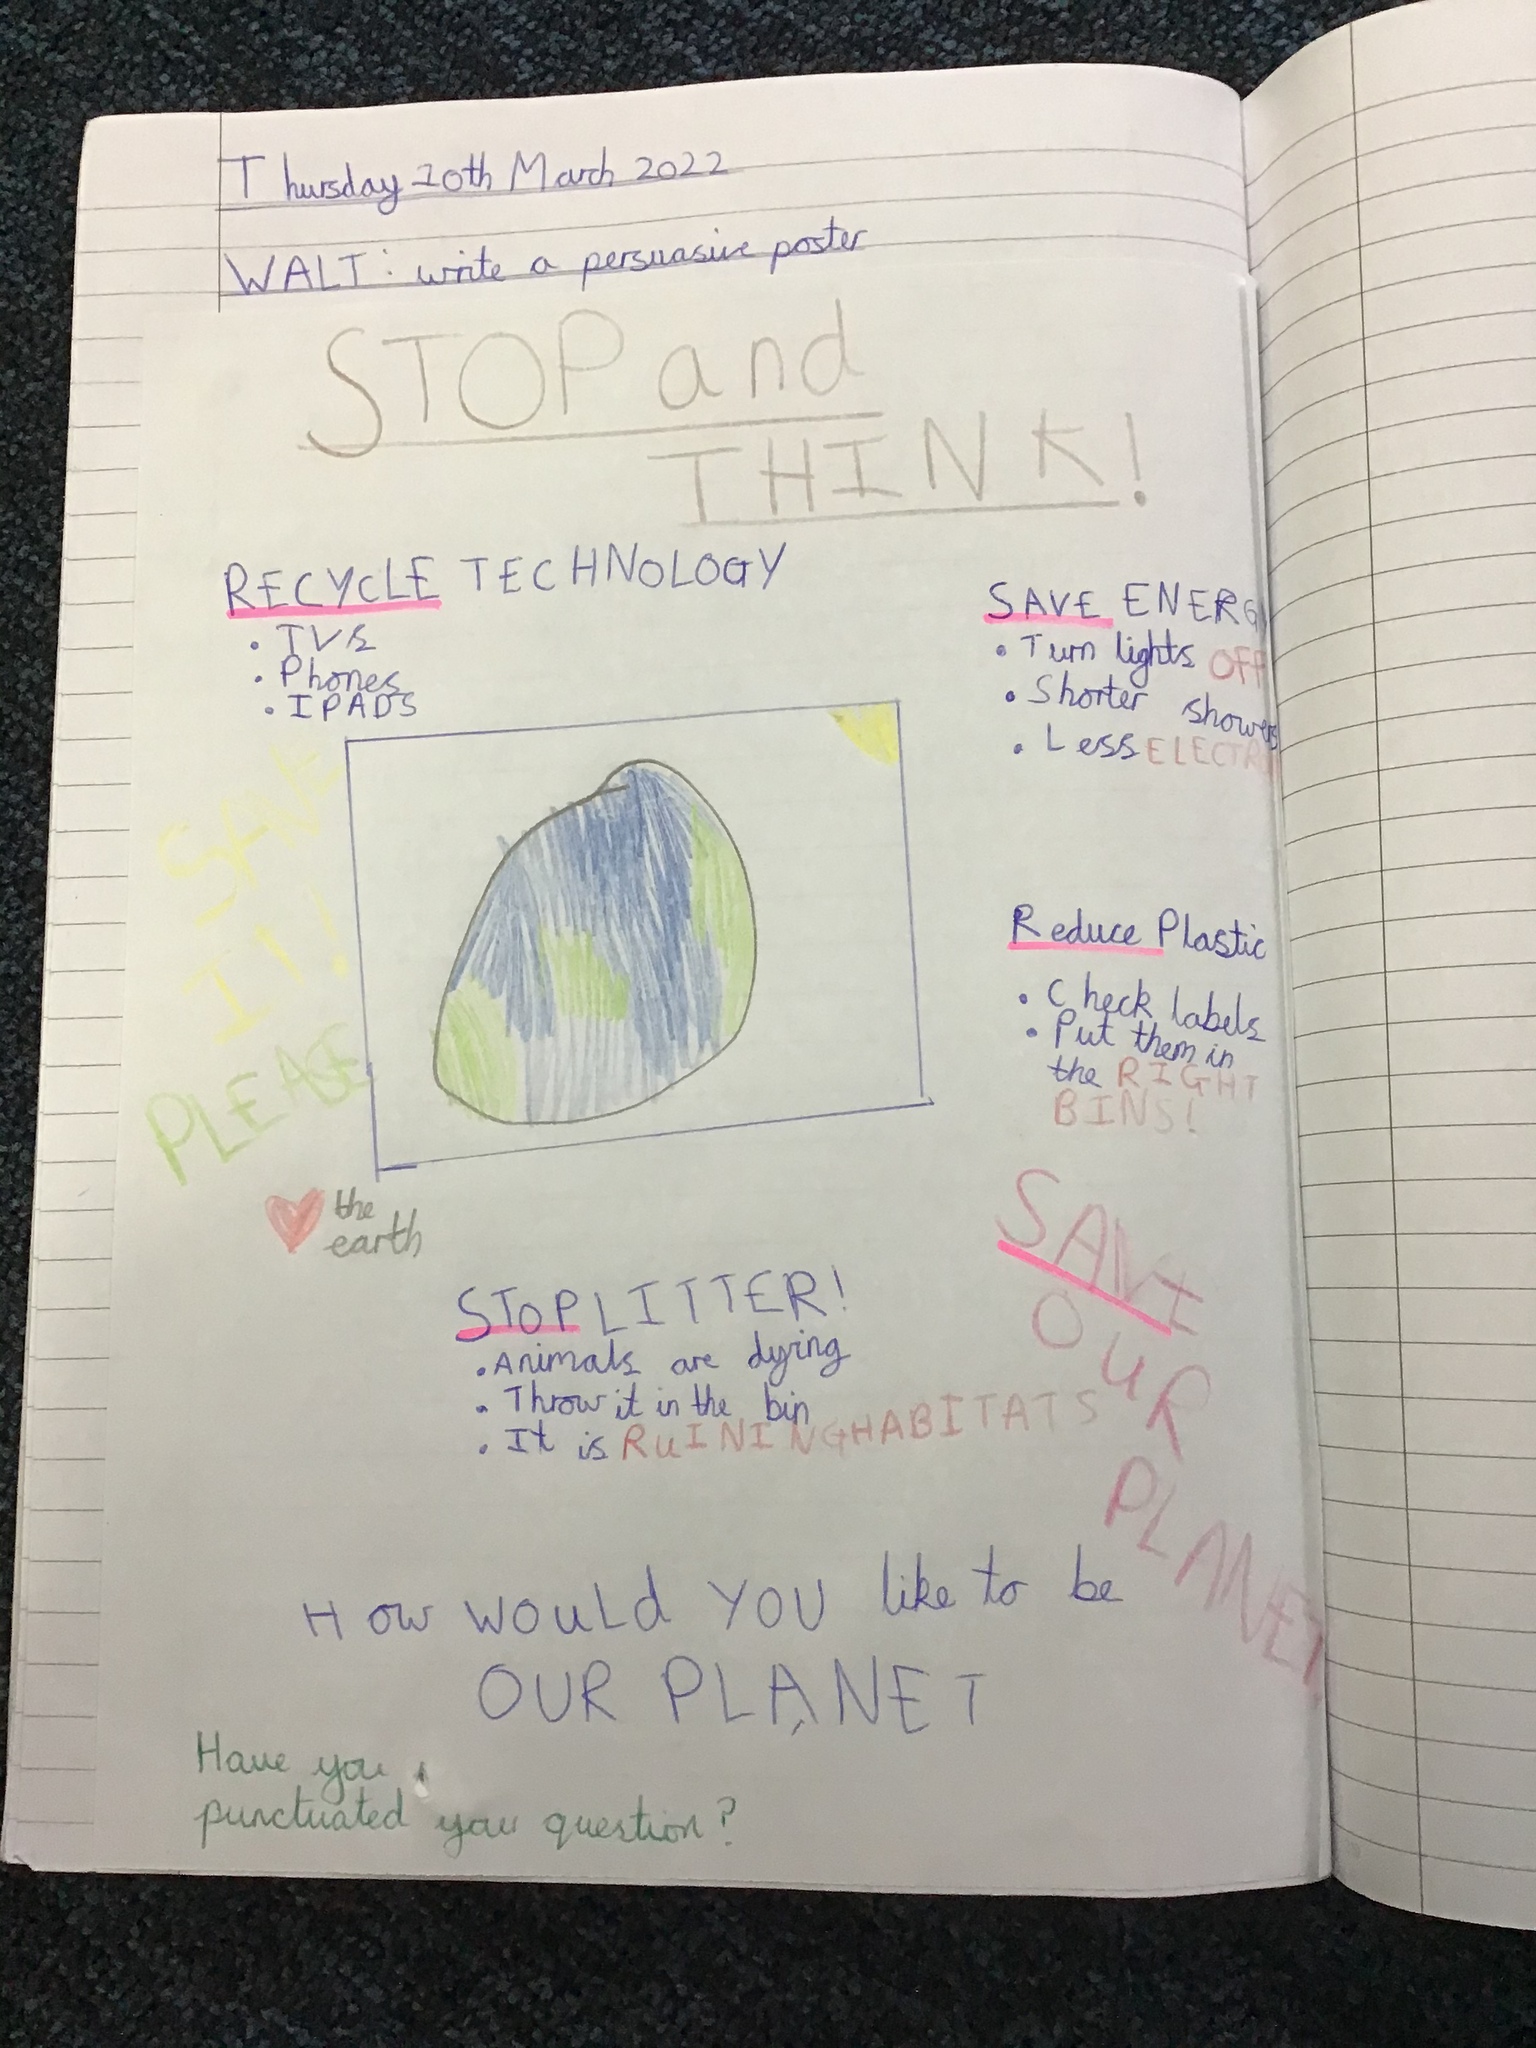 Thursday 10th March 2022
WALT: write a persuasive poster
STOP and
THINK!
RECYCLE TECHNOLOGY
• TVs
• Phones
• IPADS
SAVE ENERG
• Turn lights OFF
• Shorter showers
• Less ELECTR
SAVE
IT!
PLEASE
Reduce Plastic
• Check labels
• Put them in
the RIGHT
BINS!
the
earth
STOP LITTER!
• Animals are dying
• Throw it in the bin
• It is RuINING HABITATS
SAVE
OuR
PLANET
How WOULd YOU like to be
OUR PLANET
Have you
punctuated your question?